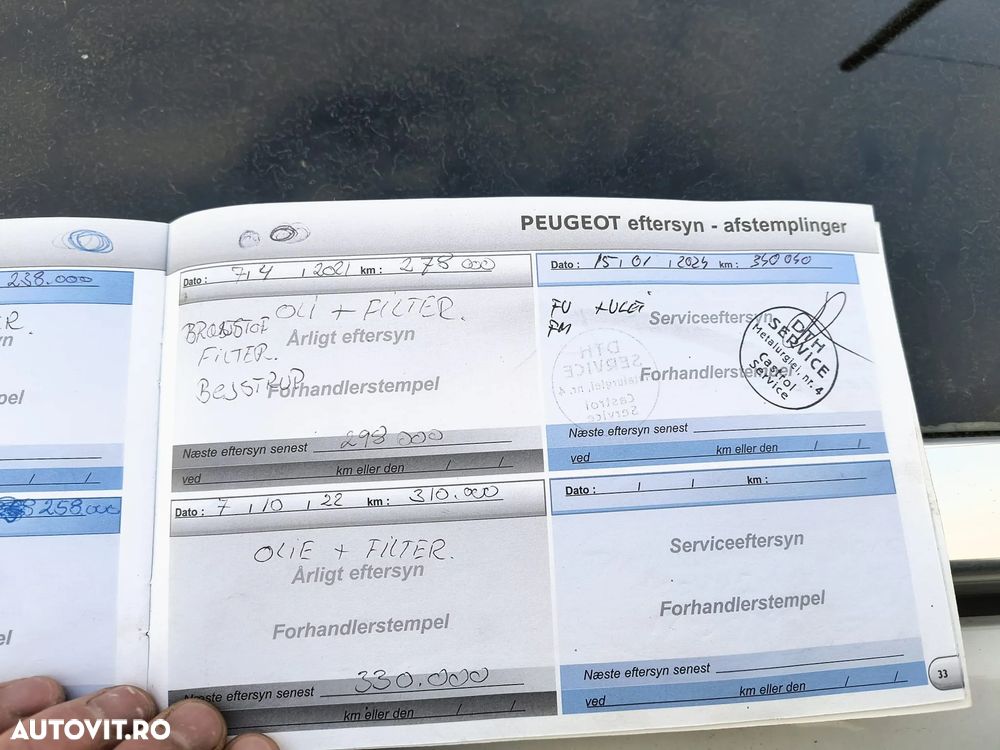 PEUGEOT eftersyn - afstemplinger
238.000
258.000
Dato : 7, 4 , 2021 km : 278 000
OLI + FILTER.
Årligt eftersyn
FILTER.
Forhandlerstempel
Næste eftersyn senest 298 000
ved / / km eller den
Dato : 7 , 10 , 22 km : 310.000
OLIE + FILTER.
Årligt eftersyn
Forhandlerstempel
Næste eftersyn senest 330.000
km eller den / /
Dato : 15, 01 , 2024 km : 340 040
FU + ULEI
FM
Serviceeftersyn
Forhandlerstempel
DTH
SERVICE
Metalurgiei, nr. 4
Castrol
Service
Næste eftersyn senest
ved km eller den / /
Dato : / / km :
Serviceeftersyn
Forhandlerstempel
Næste eftersyn senest
ved km eller den / /
33
AUTOVIT.RO